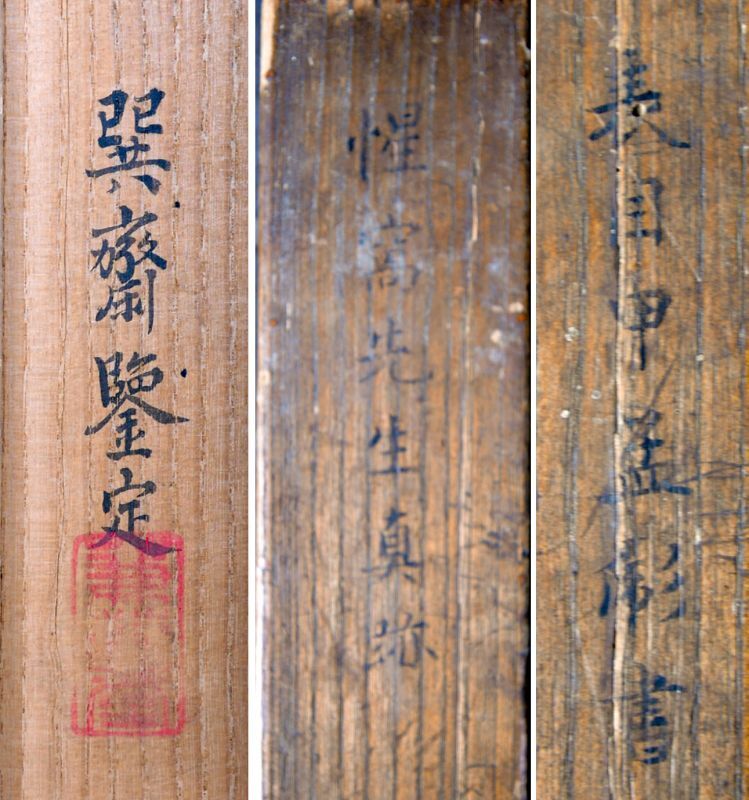 巽齋鑒定
惺窩先生真跡
表目甲盖書